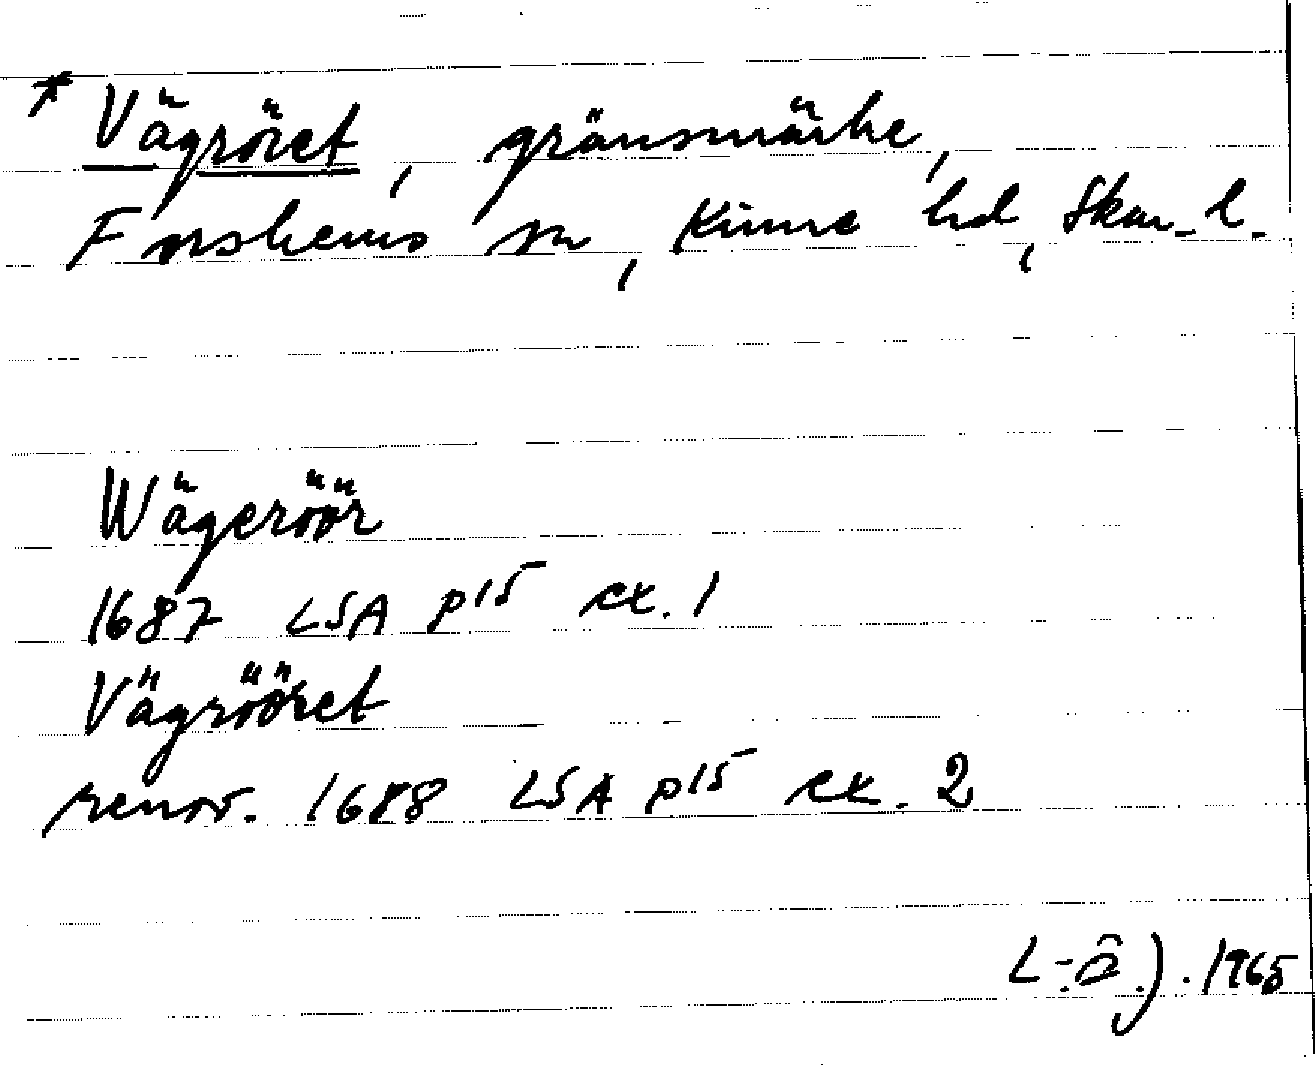 * Vägröret, gränsmärke,
Forshems sn, Kinne hd, Skar. l.
Wägeröör
1687 LSA P15 ex. 1
Vägrööret
renov. 1688 LSA P15 ex. 2
L-Å. J. 1965